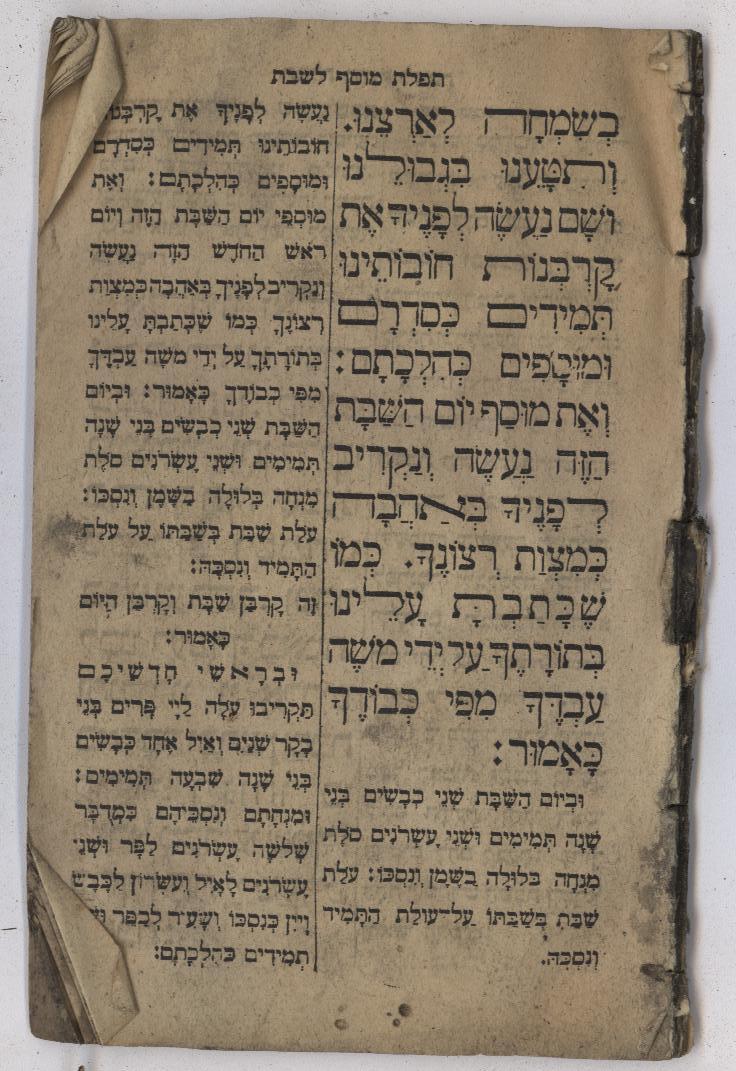 תפלת מוסף לשבת
בְּשִׂמְחָה לְאַרְצֵנוּ.
וְתִטָּעֵנוּ בִּגְבוּלֵנוּ
וְשָׁם נַעֲשֶׂה לְפָנֶיךָ אֶת
קָרְבְּנוֹת חוֹבוֹתֵינוּ
תְּמִידִים כְּסִדְרָם
וּמוּסָפִים כְּהִלְכָתָם:
וְאֶת מוּסַף יוֹם הַשַּׁבָּת
הַזֶּה נַעֲשֶׂה וְנַקְרִיב
לְפָנֶיךָ בְּאַהֲבָה
כְּמִצְוַת רְצוֹנֶךָ. כְּמוֹ
שֶׁכָּתַבְתָּ עָלֵינוּ
בְּתוֹרָתֶךָ עַל יְדֵי מֹשֶׁה
עַבְדֶּךָ מִפִּי כְּבוֹדֶךָ
כָּאָמוּר:
וּבְיוֹם הַשַּׁבָּת שְׁנֵי כְבָשִׂים בְּנֵי
שָׁנָה תְּמִימִים וּשְׁנֵי עֶשְׂרֹנִים סֹלֶת
מִנְחָה בְּלוּלָה בַשֶּׁמֶן וְנִסְכּוֹ: עֹלַת
שַׁבַּת בְּשַׁבַּתּוֹ עַל־עוֹלַת הַתָּמִיד
וְנִסְכָּהּ.
נַעֲשֶׂה לְפָנֶיךָ אֶת קָרְבְּנוֹת
חוֹבוֹתֵינוּ תְּמִידִים כְּסִדְרָם
וּמוּסָפִים כְּהִלְכָתָם: וְאֶת
מוּסְפֵי יוֹם הַשַּׁבָּת הַזֶּה וְיוֹם
רֹאשׁ הַחֹדֶשׁ הַזֶּה נַעֲשֶׂה
וְנַקְרִיב לְפָנֶיךָ בְּאַהֲבָה כְּמִצְוַת
רְצוֹנֶךָ כְּמוֹ שֶׁכָּתַבְתָּ עָלֵינוּ
בְּתוֹרָתֶךָ עַל יְדֵי מֹשֶׁה עַבְדֶּךָ
מִפִּי כְבוֹדֶךָ כָּאָמוּר: וּבְיוֹם
הַשַּׁבָּת שְׁנֵי כְבָשִׂים בְּנֵי שָׁנָה
תְּמִימִים וּשְׁנֵי עֶשְׂרֹנִים סֹלֶת
מִנְחָה בְּלוּלָה בַשֶּׁמֶן וְנִסְכּוֹ:
עֹלַת שַׁבַּת בְּשַׁבַּתּוֹ עַל עֹלַת
הַתָּמִיד וְנִסְכָּהּ:
זֶה קָרְבַּן שַׁבָּת וְקָרְבַּן הַיּוֹם
כָּאָמוּר:
וּבְרָאשֵׁי חָדְשֵׁיכֶם
תַּקְרִיבוּ עֹלָה לַיְיָ פָּרִים בְּנֵי
בָקָר שְׁנַיִם וְאַיִל אֶחָד כְּבָשִׂים
בְּנֵי שָׁנָה שִׁבְעָה תְּמִימִים:
וּמִנְחָתָם וְנִסְכֵּיהֶם כִּמְדֻבָּר
שְׁלֹשָׁה עֶשְׂרֹנִים לַפָּר וּשְׁנֵי
עֶשְׂרֹנִים לָאַיִל וְעִשָּׂרוֹן לַכֶּבֶשׂ
וְיַיִן כְּנִסְכּוֹ וְשָׂעִיר לְכַפֵּר
תְמִידִים כְּהִלְכָתָם: